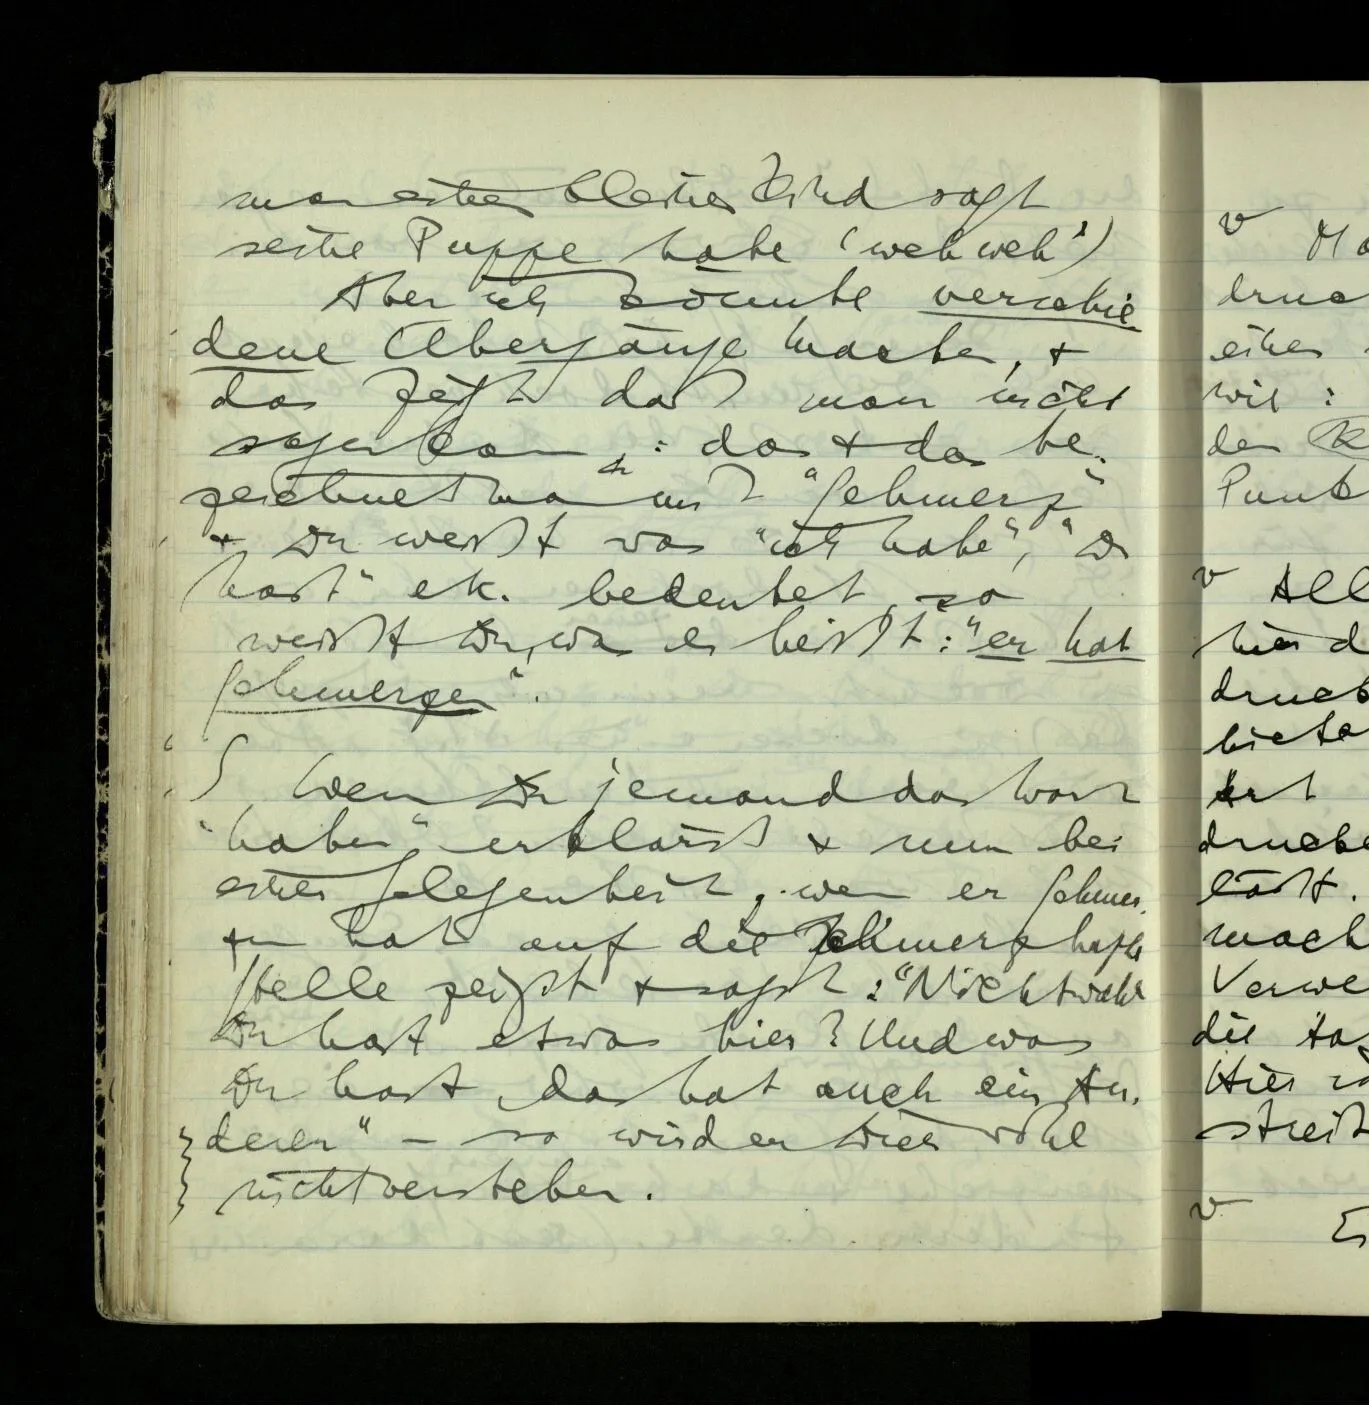 man einem kleinen Kind sagt
seine Puppe habe 'wehweh')
Aber ich könnte verschie-
dene Übergänge machen, &
das zeigt daß man nicht
sagen kann: das & das be-
zeichnet man mit "Schmerz"
& Du weißt was "ich habe", "Du
hast" etc. bedeutet, so
weißt Du, was es heißt: "er hat
Schmerzen".
S Wenn Du jemand das Wort
"haben" erklärst & nun bei
einer Gelegenheit, wenn er Schmer-
zen hat auf die schmerzhafte
Stelle zeigst & sagst: "Nichtwahr
Du hast etwas hier? Und was
Du hast, das hat auch ein An-
derer" – so wird er Dies wohl
nicht verstehen.
v Ma
druc
einen
wie :
den K
Punk
v All
hier d
druck
biete
Art
drucke
läßt.
mach
Verwe
die
Hier
streit
v Es